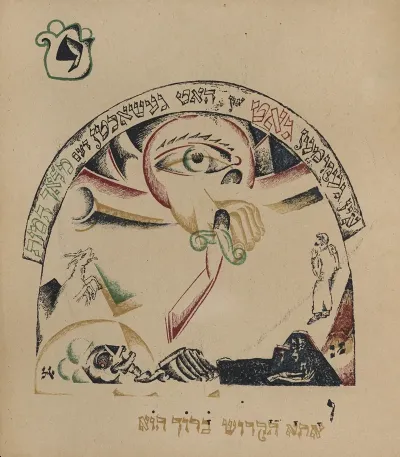 איז געקומען גאט און האט געשאכטן דעם מלאך המות
ואתא הקדוש ברוך הוא